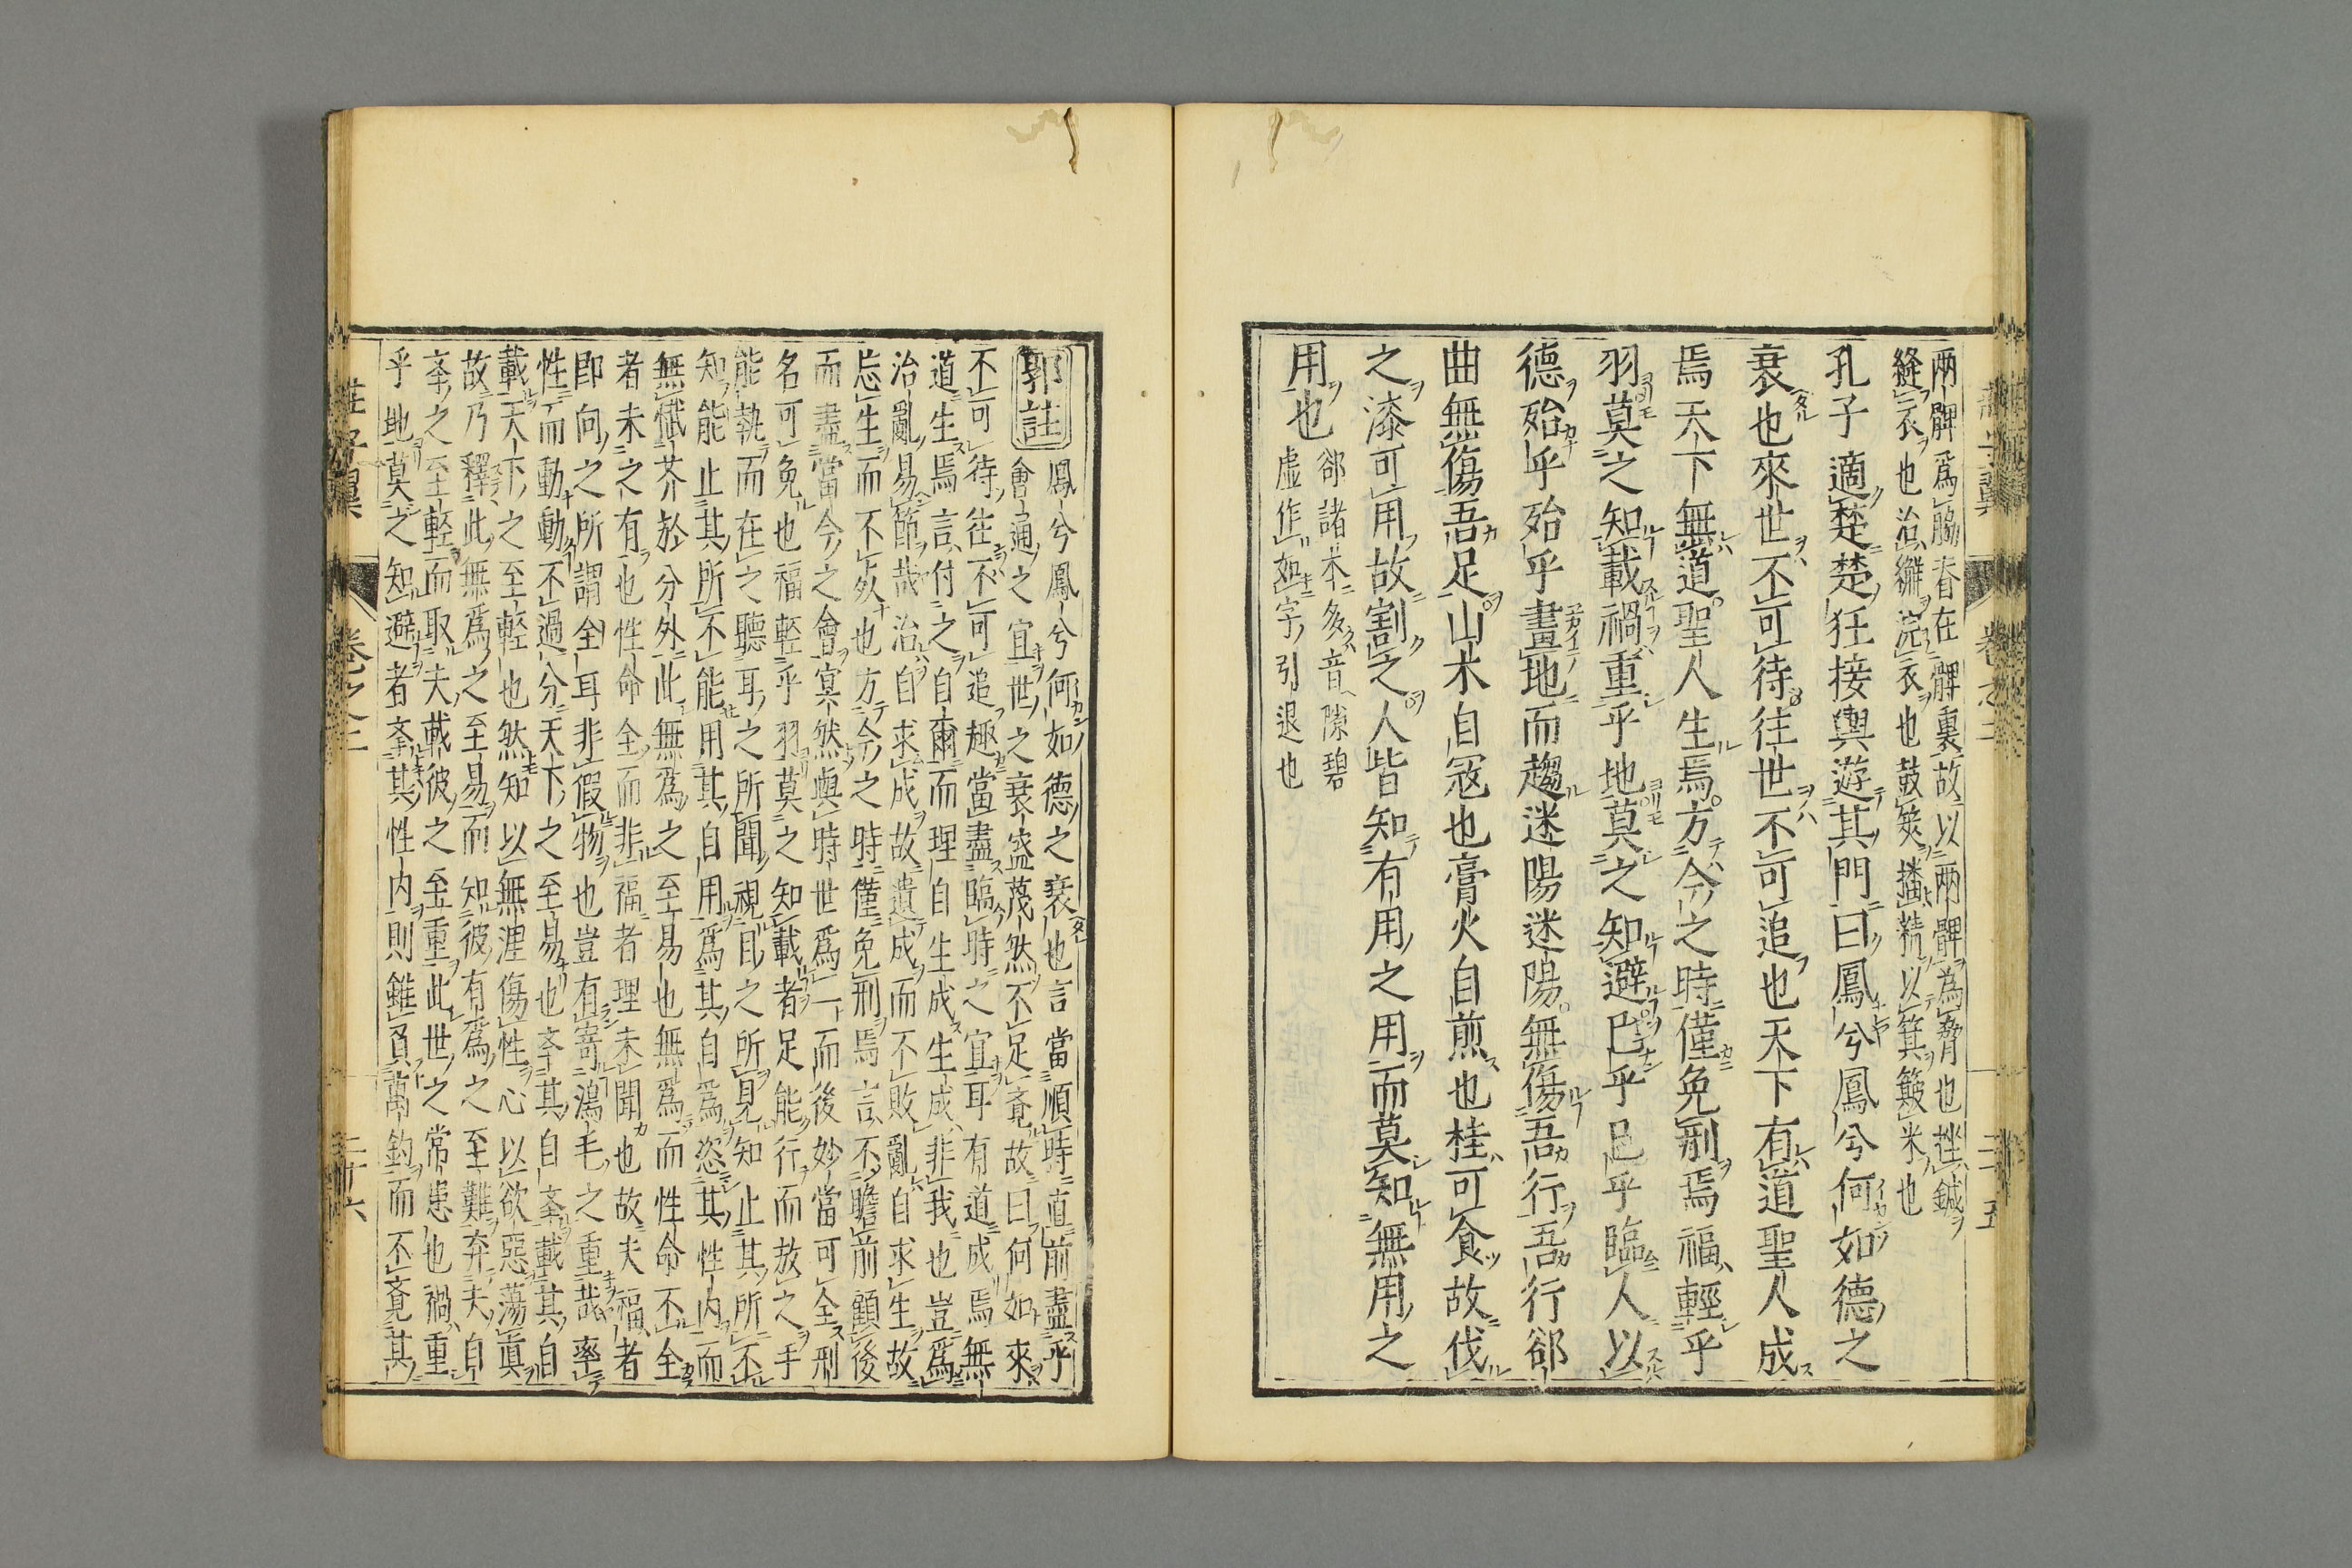 兩髀爲脇脊在髀裏故以兩髀爲脅也挫鍼
縫衣也治繲浣衣也鼓筴播精以箕簸米也
孔子適楚楚狂接輿遊其門曰鳳兮鳳兮何如德之
衰也來世不可待往世不可追也天下有道聖人成
焉天下無道聖人生焉方今之時僅免刑焉福輕乎
羽莫之知載禍重乎地莫之知避已乎已乎臨人以
德殆乎殆乎畫地而趨迷陽迷陽無傷吾行吾行郤
曲無傷吾足山木自寇也膏火自煎也桂可食故伐
之漆可用故割之人皆知有用之用而莫知無用之
用也郤諸本多音隙碧
虛作如字引退也
郭註鳳兮鳳兮何如德之衰也言當順時直前盡乎
會通之宜世之衰盛蔑然不足覔故曰何如來
不可待往不可追趣當盡臨時之宜耳有道成焉無
道生焉言付之自爾而理自生成生成非我也豈爲
治亂易節哉治自求成故遺成而不敗亂自求生故
忘生而不死也方今之時僅免刑焉言不瞻前顧後
而盡當今之會冥然與時世爲一而後妙當可全刑
名可免也福輕乎羽莫之知載者足能行而放之手
能執而在之聽耳之所聞視目之所見知止其所不
知能止其所不能用其自用爲其自爲恣其性內而
無懴芥於分外此無爲之至易也無爲而性命不全
者未之有也性命全而非福者理未聞也故夫福者
即向之所謂全耳非假物也豈有寄鴻毛之重哉率
性而動動不過分天下之至易也夲其自夲載其自
載天下之至輕也然知以無涯傷性心以欲惡蕩眞
故乃釋此無爲之至易而知彼有爲之至難弃夫自
夲之至輕而取夫載彼之至重此世之常患也禍重
乎地莫之知避者夲其性內則雖負萬鈞而不覔其
莊子翼 卷之二 二十六